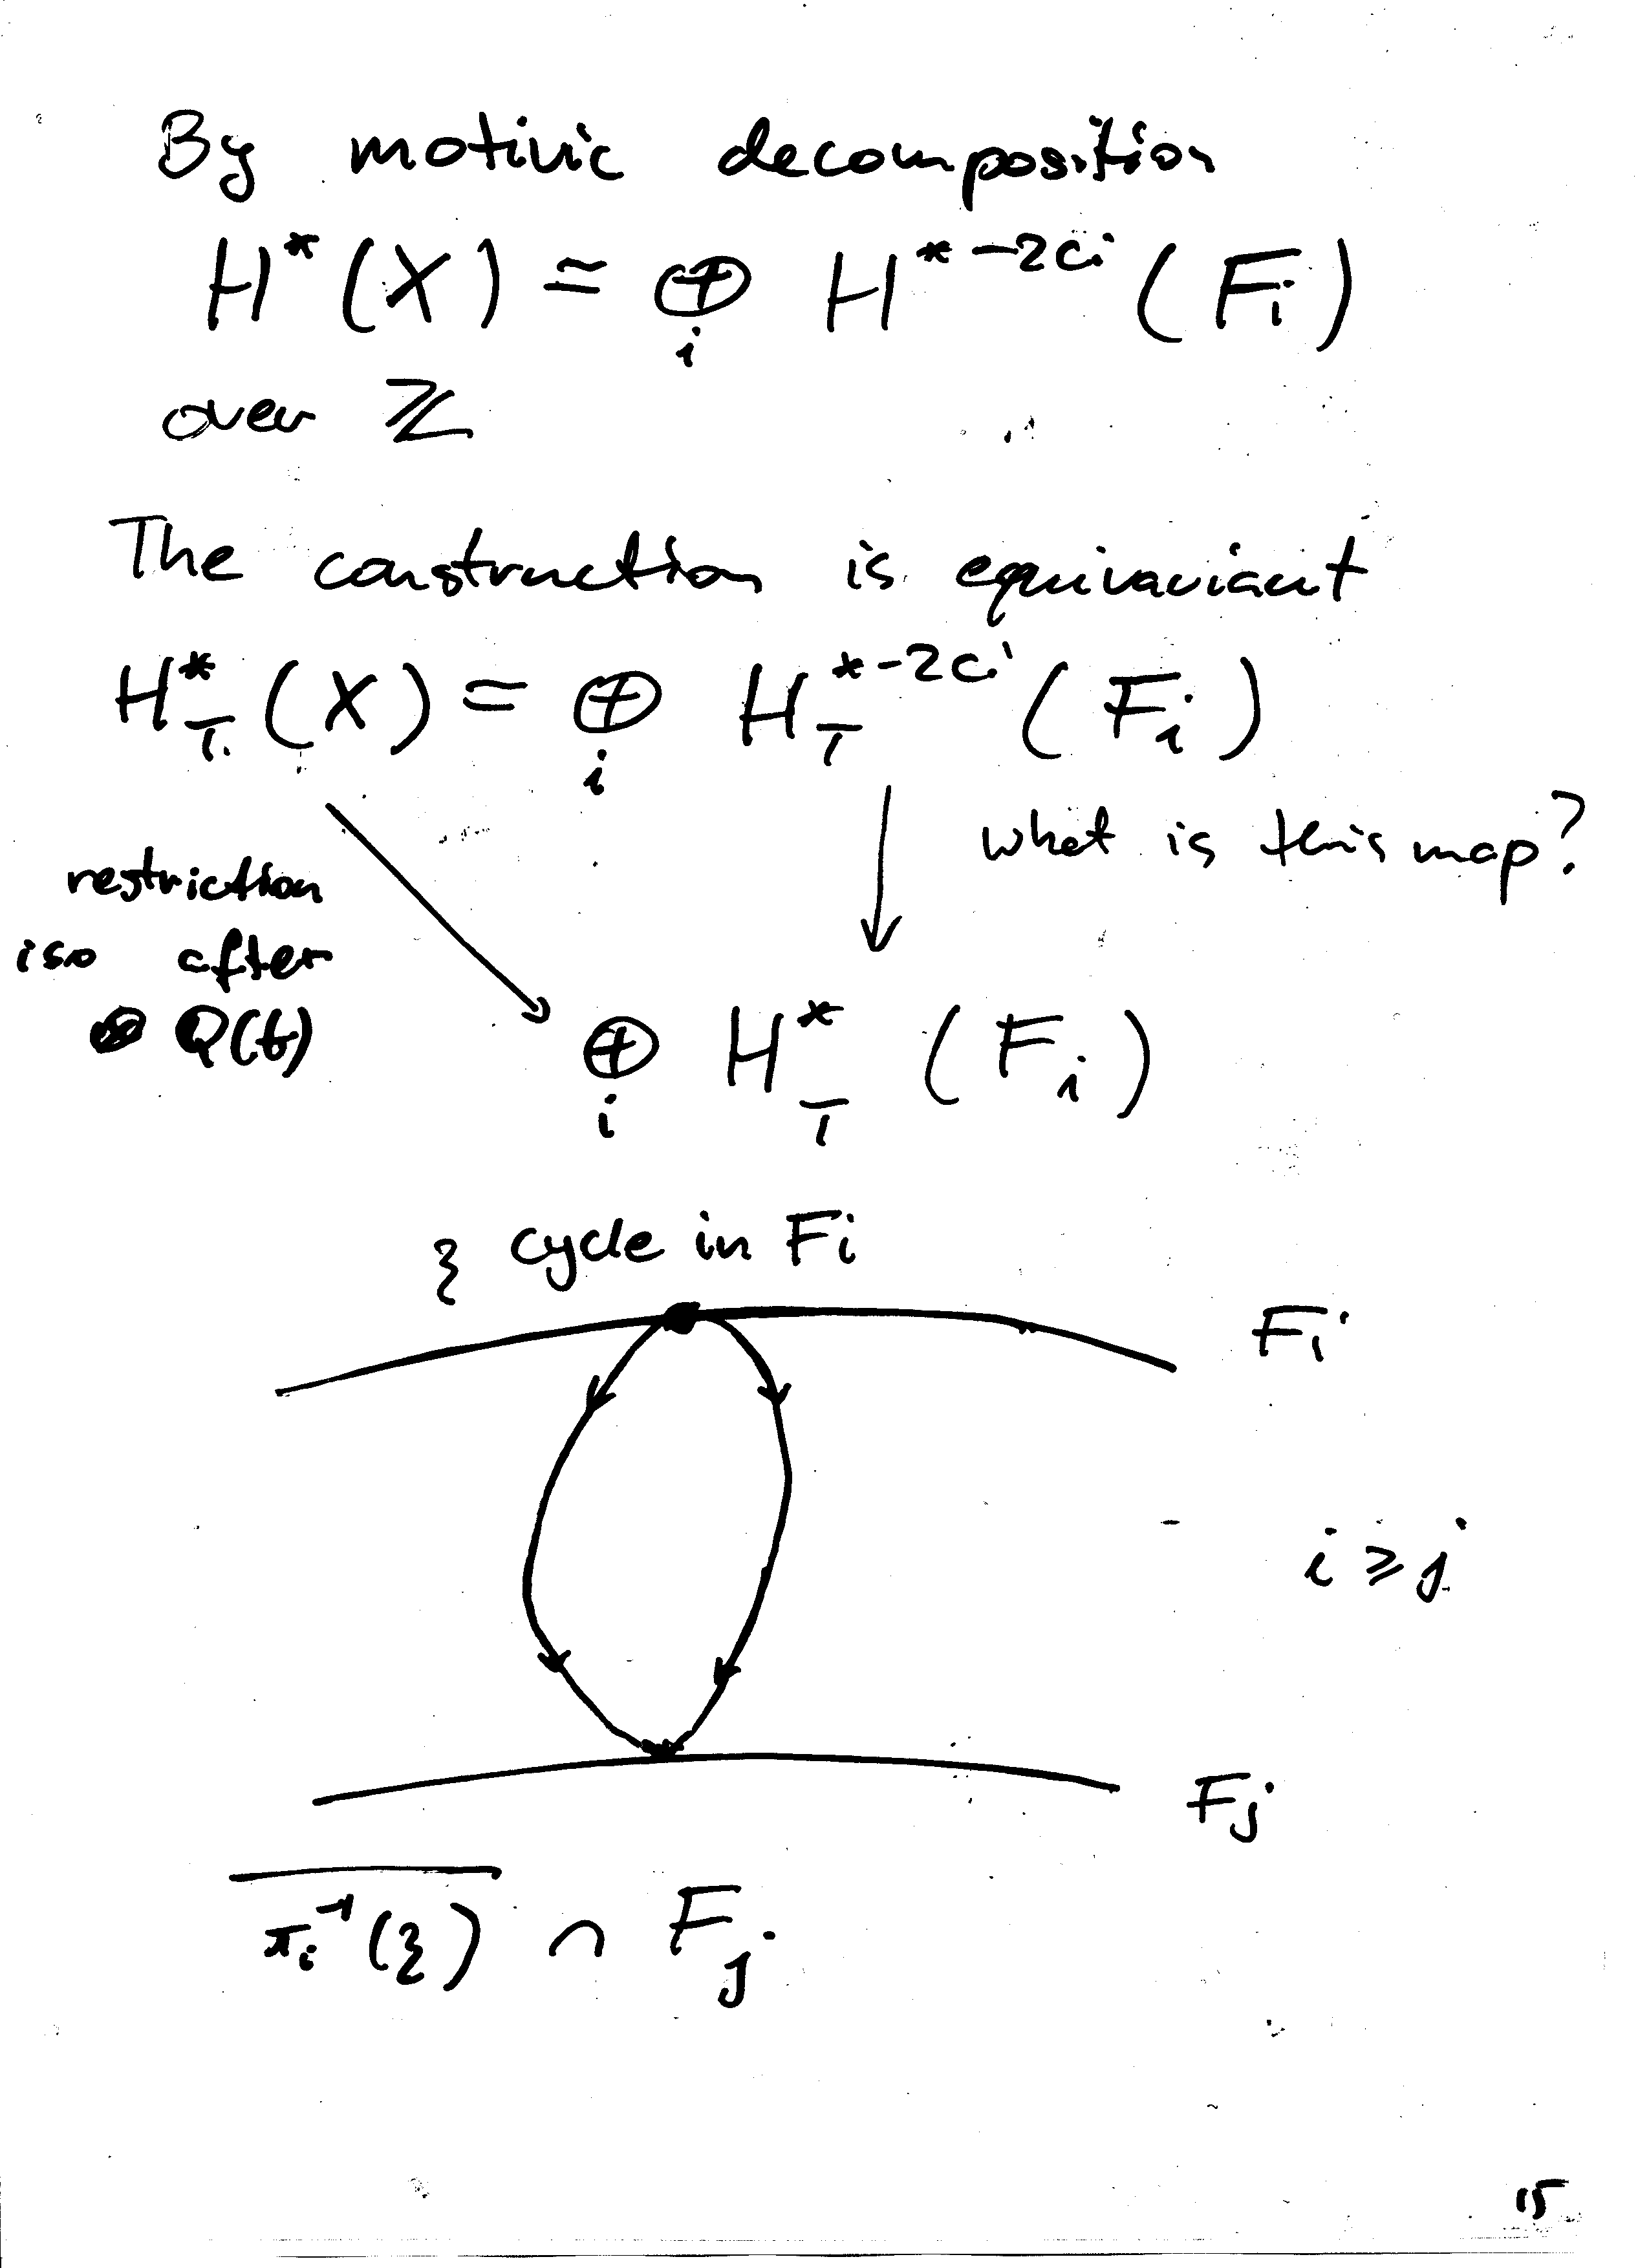 By motivic decomposition
H*(X) ≃ ⊕_i H^{*-2c_i}(F_i)
over ℤ
The construction is equivariant
H*_T(X) = ⊕_i H_T^{*-2c_i}(F_i)
what is this map?
restriction
iso after
Q(t)
⊕_i H*_T(F_i)
ξ cycle in F_i
F_i
i ≥ j
F_j
\overline{π_i^{-1}(ξ)} ∩ F_j
15